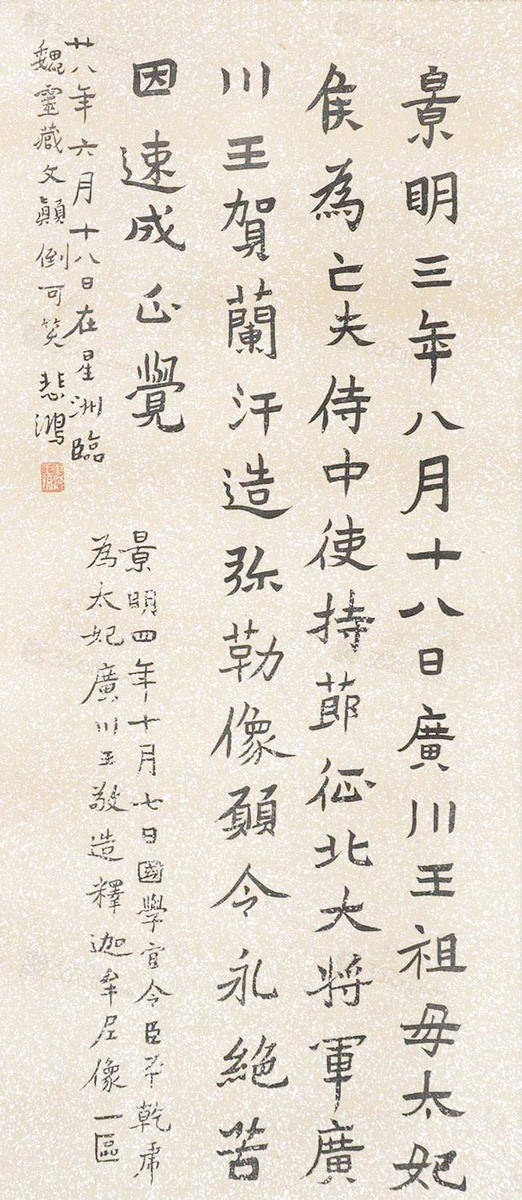 景明三年八月十八日廣川王祖母太妃
侯為亡夫侍中使持莭征北大將軍廣
川王賀蘭汗造弥勒像願令永絕苦
因速成正覺
景明四年十月七日國學官令臣平乾虎
為太妃廣川王敬造釋迦牟尼像一區
廿八年六月十八日在星洲臨
魏靈藏文顛倒可笑 悲鴻